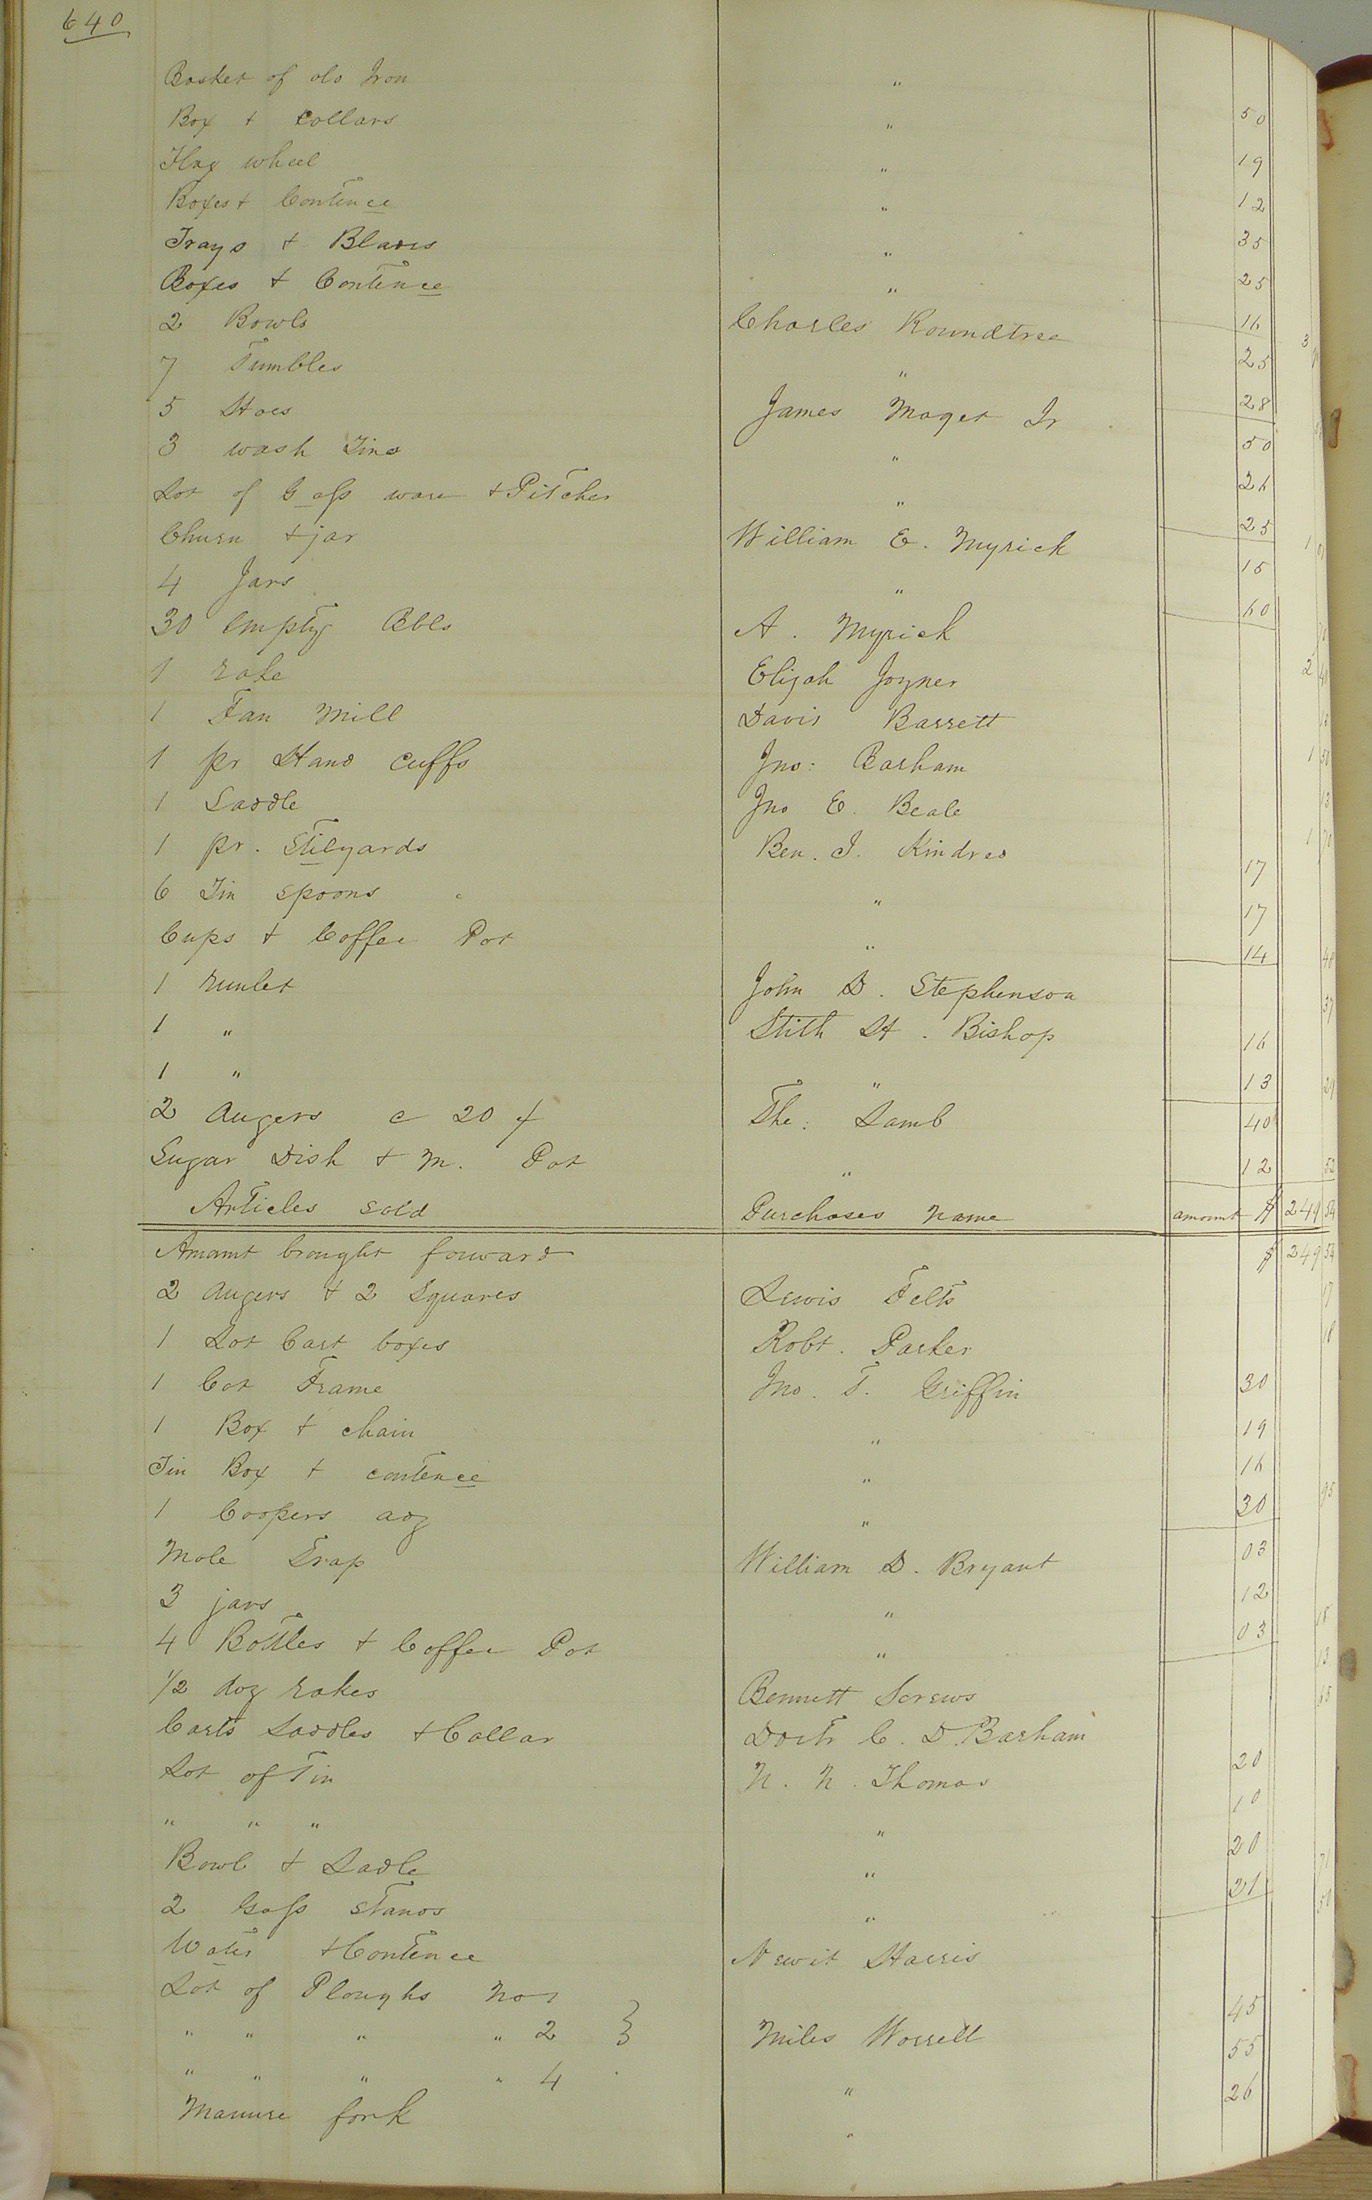 640
Basket of old Iron "
Box & Collars " 50
Flax wheel " 19
Boxes & Contence " 12
Trays & Blades " 35
Boxes & Contence " 25
2 Bowls Charles Roundtree 16
7 Tumbles " 25
5 Hoes James Maget Jr 28
3 wash Tins " 50
Lot of Gass ware & Pitcher " 26
Churn & jar William E. Myrick 25
4 Jars " 15
30 empty Bbls A. Myrick 60
1 rake Elijah Joyner
1 Fan Mill Davis Barrett
1 pr Hand Cuffs Jno: Barham
1 Saddle Jno E. Beale
1 pr. Stilyards Ben. J. Kindred 17
6 Tin spoons " 17
Cups & Coffee Pot " 14
1 runlet John D. Stephenson
1 " Stith H. Bishop 16
1 " " 13
2 Augers c 20 The: Lamb 40
Sugar Dish & M. Pot " 12
Articles sold Purchases name amount $ 249 54
Amount brought forward $ 249 54
2 Augers & 2 Squares Lewis Felts
1 Lot Cart boxes Robt. Parker
1 Cot Frame Jno. T. Griffin 30
1 Box & chain " 19
Tin Box & contence " 16
1 Coopers adz " 30
Mole Trap William D. Bryant 03
3 jars " 12
4 Bottles & Coffee Pot " 03
1/2 doz rakes Bennett Screws
Carts Saddles & Collar Doctr C. D. Barham
Lot of Tin N. N. Thomas 20
" " " " 10
Bowl & Ladle " 20
2 Gass stands " 21
Water & Contence Newit Harris
Lot of Ploughs No 1 45
" " " " 2 } Miles Worrell 55
" " " " 4 " 26
Manure fork "